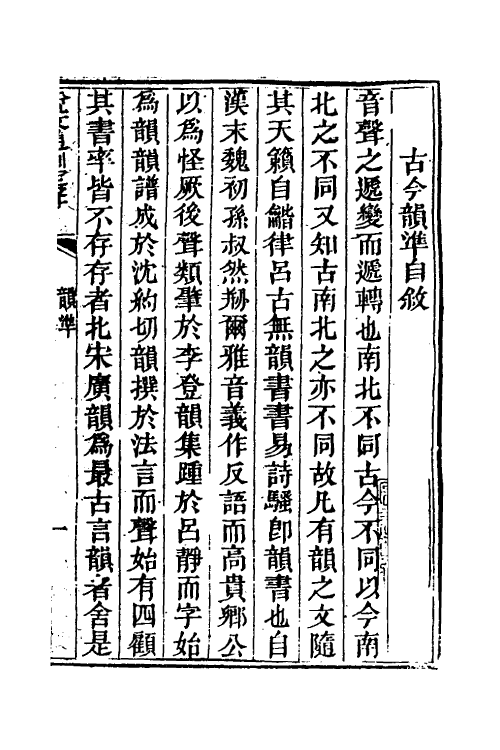 古今韻準自敘
音聲之遞變而遞轉也南北不同古今不同以今南
北之不同又知古南北之亦不同故凡有韻之文隨
其天籟自龤律呂古無韻書書易詩騷卽韻書也自
漢末魏初孫叔然剙爾雅音義作反語而高貴鄉公
以爲怪厥後聲類肇於李登韻集踵於呂靜而字始
爲韻韻譜成於沈約切韻撰於法言而聲始有四顧
其書率皆不存存者北宋廣韻爲最古言韻者舍是
韻準
一